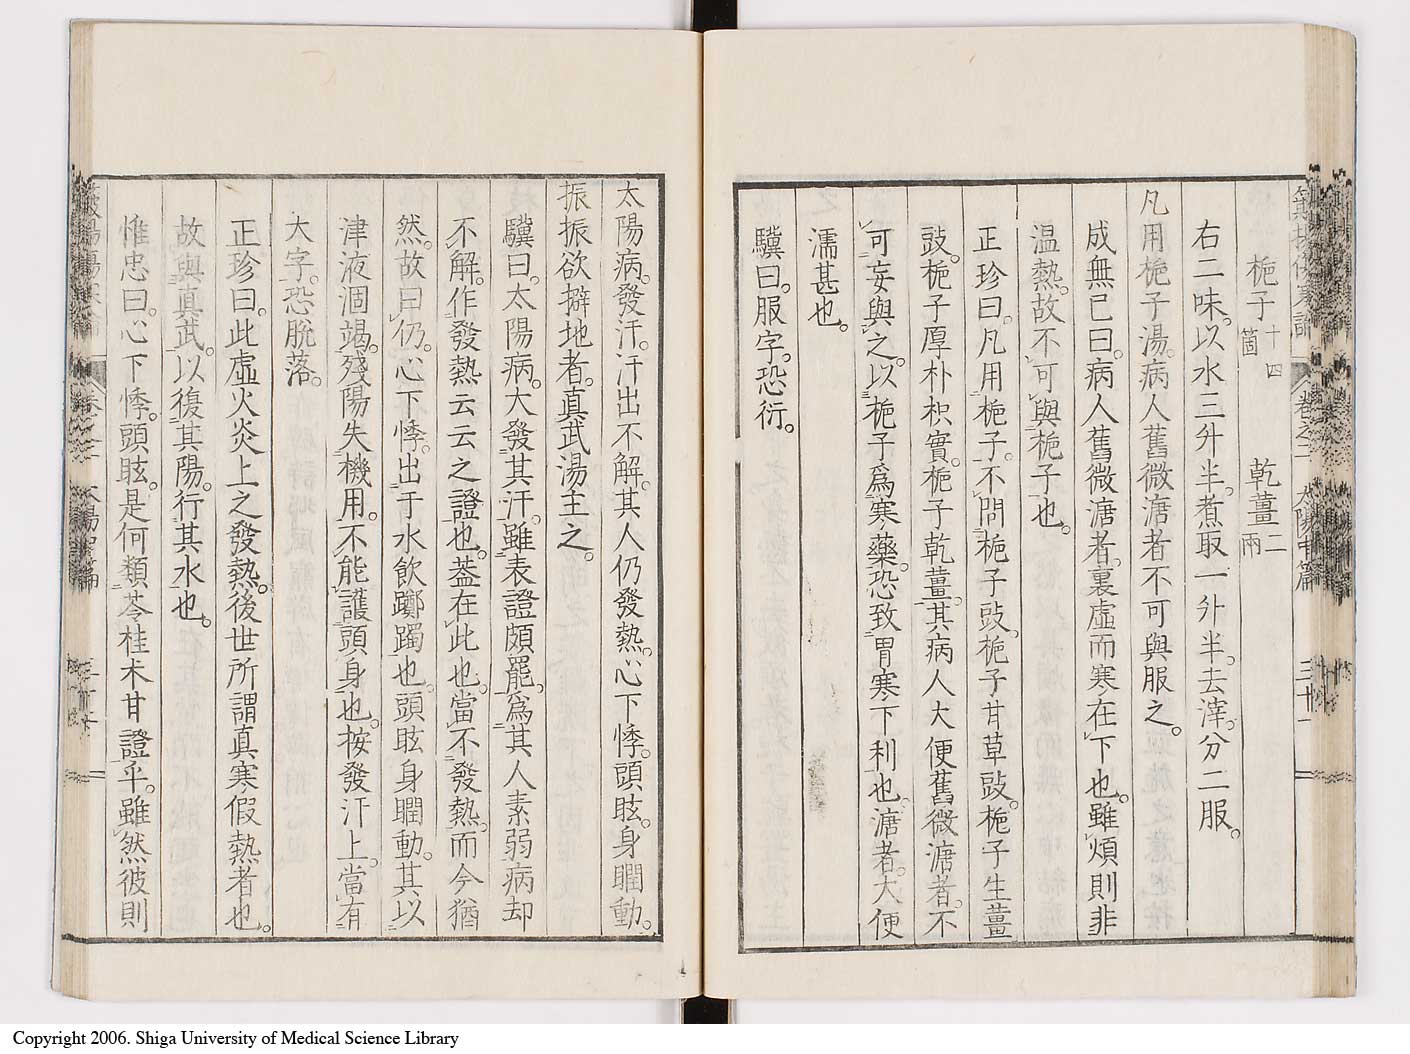 梔子十四箇 乾薑二兩
右二味。以水三升半。煮取一升半。去滓。分二服。
凡用梔子湯。病人舊微溏者不可與服之。
成無已曰。病人舊微溏者。裏虛而寒在下也。雖煩則非
温熱。故不可與梔子也。
正珍曰。凡用梔子。不問梔子豉。梔子甘草豉。梔子生薑
豉。梔子厚朴枳實。梔子乾薑。其病人大便舊微溏者。不
可妄與之。以梔子爲寒藥。恐致胃寒下利也。溏者。大便
濡甚也。
驥曰。服字。恐衍。
太陽病。發汗。汗出不解。其人仍發熱。心下悸。頭眩。身瞤動。
振振欲擗地者。眞武湯主之。
驥曰。太陽病。大發其汗。雖表證頗罷。爲其人素弱病却
不解。作發熱云云之證也。葢在此也。當不發熱。而今猶
然。故曰仍。心下悸。出于水飲躑躅也。頭眩身瞤動。其以
津液涸竭。殘陽失機用。不能護頭身也。按發汗上。當有
大字。恐脫落。
正珍曰。此虛火炎上之發熱。後世所謂眞寒假熱者也。
故與眞武。以復其陽。行其水也。
惟忠曰。心下悸。頭眩。是何類苓桂朮甘證乎。雖然彼則
卷之二 太陽中篇 三十一
Copyright 2006. Shiga University of Medical Science Library